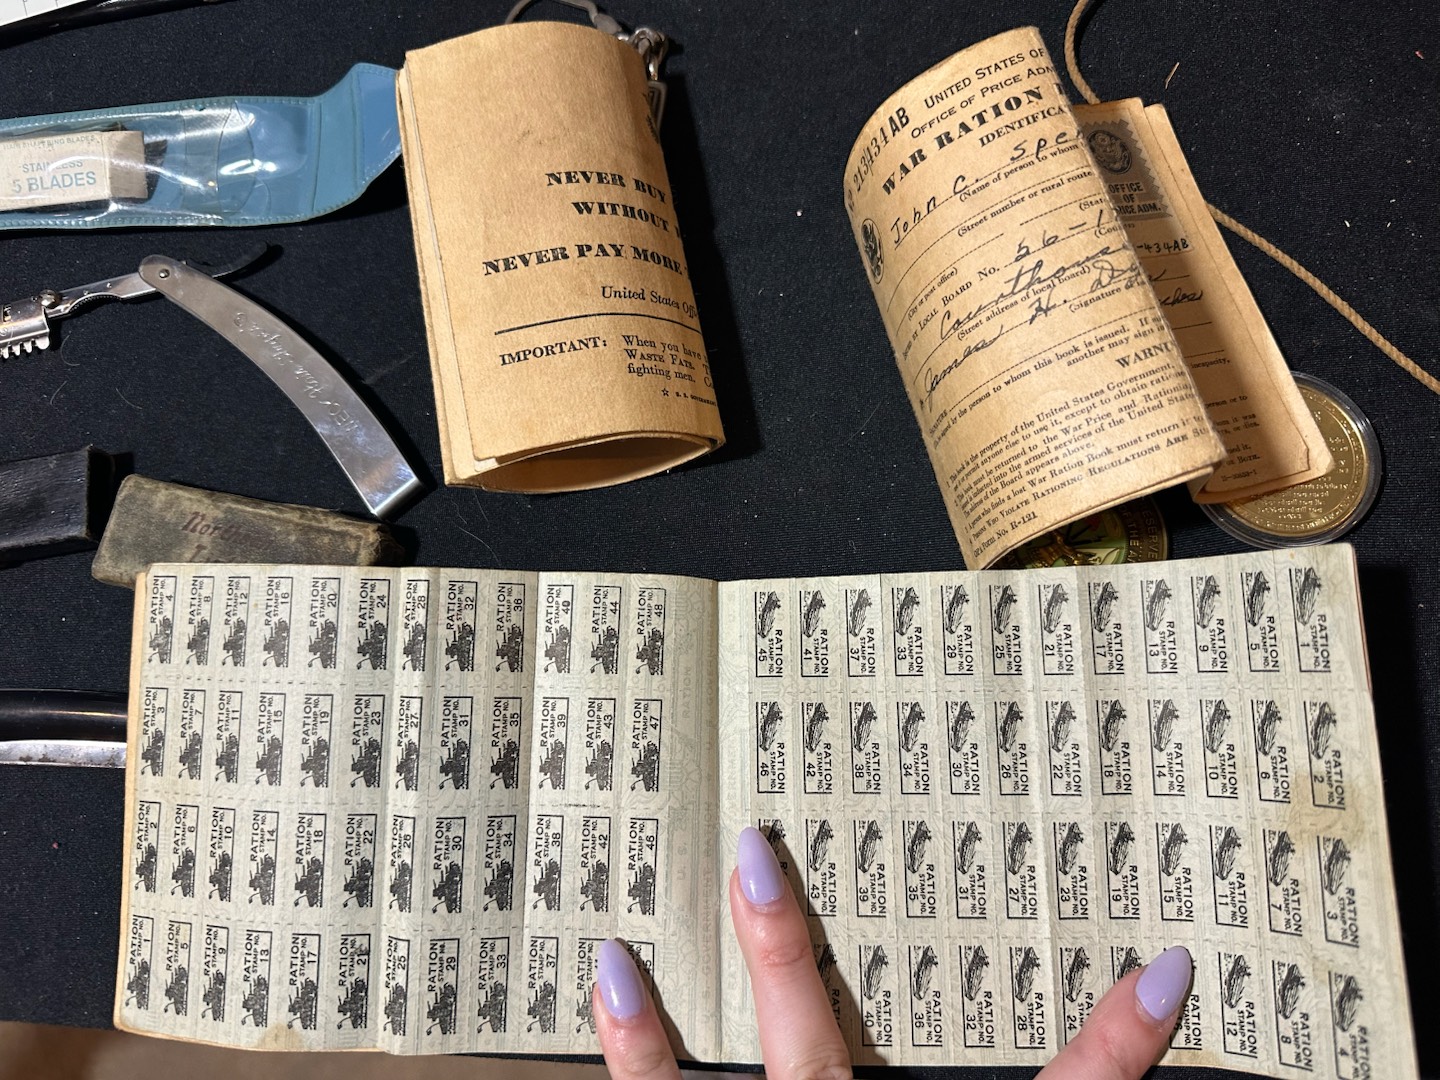 STAINLESS
5 BLADES
NEVER BUY
WITHOUT
NEVER PAY MORE
United States Off
IMPORTANT: When you have
WASTE FATS.
fighting men.
213434 AB
UNITED STATES OF
OFFICE OF PRICE ADM
WAR RATION
IDENTIFICA
John C. Spe
(Name of person to whom
(Street number or rural route
(City or post office)
(State
LOCAL BOARD No. 56-1
(Coun
Courthouse
(Street address of local board)
James H.
(Signature
to whom this book is issued.
another may sign
WARNIN
is the property of the United States Government.
anyone else to use it, except to obtain ration
must be returned to the War Price and Rationi
inducted into the armed services of the United States
of the Board appears above.
who finds a lost War Ration Book must return it to
WHO VIOLATE RATIONING REGULATIONS ARE SU
Form No. R-121
OFFICE
OF
PRICE ADM.
-434AB
RESERVE
RATION STAMP NO. 4
RATION STAMP NO. 8
RATION STAMP NO. 12
RATION STAMP NO. 16
RATION STAMP NO. 20
RATION STAMP NO. 24
RATION STAMP NO. 28
RATION STAMP NO. 32
RATION STAMP NO. 36
RATION STAMP NO. 40
RATION STAMP NO. 44
RATION STAMP NO. 48
RATION STAMP NO. 3
RATION STAMP NO. 7
RATION STAMP NO. 11
RATION STAMP NO. 15
RATION STAMP NO. 19
RATION STAMP NO. 23
RATION STAMP NO. 27
RATION STAMP NO. 31
RATION STAMP NO. 35
RATION STAMP NO. 39
RATION STAMP NO. 43
RATION STAMP NO. 47
RATION STAMP NO. 2
RATION STAMP NO. 6
RATION STAMP NO. 10
RATION STAMP NO. 14
RATION STAMP NO. 18
RATION STAMP NO. 22
RATION STAMP NO. 26
RATION STAMP NO. 30
RATION STAMP NO. 34
RATION STAMP NO. 38
RATION STAMP NO. 42
RATION STAMP NO. 46
RATION STAMP NO. 1
RATION STAMP NO. 5
RATION STAMP NO. 9
RATION STAMP NO. 13
RATION STAMP NO. 17
RATION STAMP NO. 21
RATION STAMP NO. 25
RATION STAMP NO. 29
RATION STAMP NO. 33
RATION STAMP NO. 37
RATION STAMP NO. 45
RATION STAMP NO. 41
RATION STAMP NO. 37
RATION STAMP NO. 33
RATION STAMP NO. 29
RATION STAMP NO. 25
RATION STAMP NO. 21
RATION STAMP NO. 17
RATION STAMP NO. 13
RATION STAMP NO. 9
RATION STAMP NO. 5
RATION STAMP NO. 1
RATION STAMP NO. 46
RATION STAMP NO. 42
RATION STAMP NO. 38
RATION STAMP NO. 34
RATION STAMP NO. 30
RATION STAMP NO. 26
RATION STAMP NO. 22
RATION STAMP NO. 18
RATION STAMP NO. 14
RATION STAMP NO. 10
RATION STAMP NO. 6
RATION STAMP NO. 2
RATION STAMP NO. 43
RATION STAMP NO. 39
RATION STAMP NO. 35
RATION STAMP NO. 31
RATION STAMP NO. 27
RATION STAMP NO. 23
RATION STAMP NO. 19
RATION STAMP NO. 15
RATION STAMP NO. 11
RATION STAMP NO. 7
RATION STAMP NO. 3
RATION STAMP NO. 40
RATION STAMP NO. 36
RATION STAMP NO. 32
RATION STAMP NO. 28
RATION STAMP NO. 24
RATION
RATION STAMP NO. 12
RATION STAMP NO. 8
RATION STAMP NO. 4